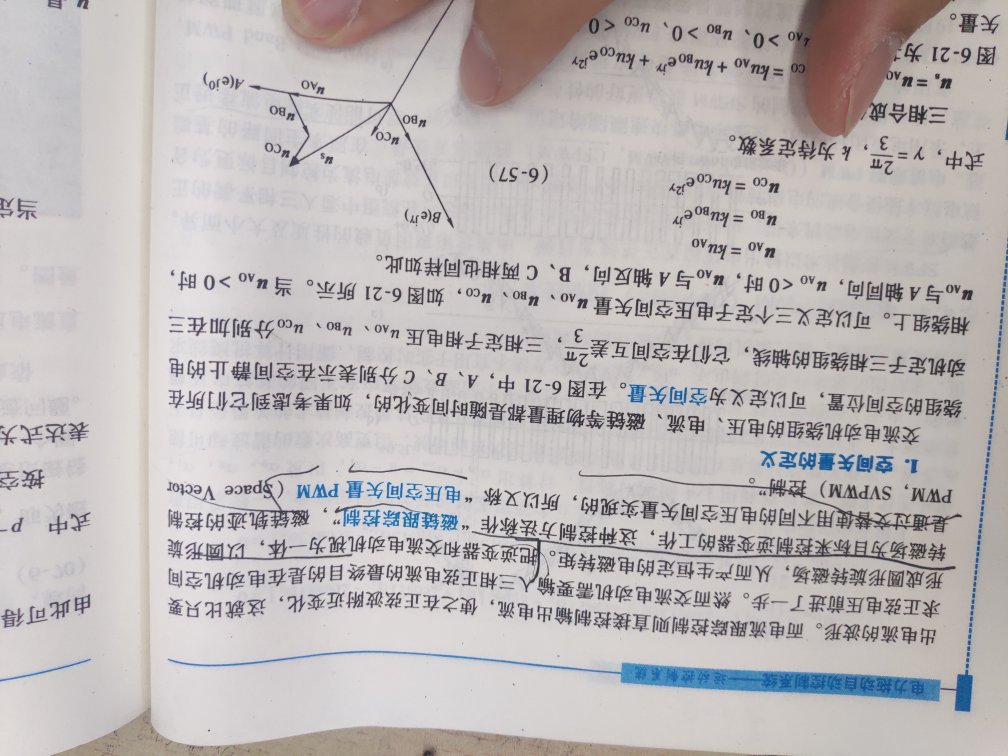 电力拖动自动控制系统——运动控制系统
出电流的波形。而电流跟踪控制则直接控制输出电流，使之在正弦波附近变化，这就比只要
求正弦电压前进了一步。然而交流电动机需要输入三相正弦电流的最终目的是在电动机空间
形成圆形旋转磁场，从而产生恒定的电磁转矩。把逆变器和交流电动机视为一体，以圆形旋
转磁场为目标来控制逆变器的工作，这种控制方法称作“磁链跟踪控制”，磁链轨迹的控制
是通过交替使用不同的电压空间矢量实现的，所以又称“电压空间矢量 PWM（Space Vector
PWM，SVPWM）控制”。
1. 空间矢量的定义
交流电动机绕组的电压、电流、磁链等物理量都是随时间变化的，如果考虑到它们所在
绕组的空间位置，可以定义为空间矢量。在图 6-21 中，A、B、C 分别表示在空间静止的电
动机定子三相绕组的轴线，它们在空间互差2π/3，三相定子相电压 uAO、uBO、uCO分别加在三
相绕组上。可以定义三个定子电压空间矢量 uAO、uBO、uCO，如图 6-21 所示。当 uAO >0 时，
uAO与 A 轴同向，uAO <0 时，uAO与 A 轴反向，B、C 两相也同样如此。
uAO = kuAO
uBO = kuBO e^jγ
uCO = kuCO e^j2γ
(6-57)
式中，γ = 2π/3，k 为待定系数。
三相合成
us = uAO
CO = kuAO + kuBO e^jγ + kuCO e^j2γ
图 6-21 为
uAO >0、uBO >0、uCO <0
矢量。
B(e^jγ)
uBO
uCO
us
uCO
uBO
uAO
A(e^j0)
由此可得
(6-70)
式中 P
按空
表达式为
当定